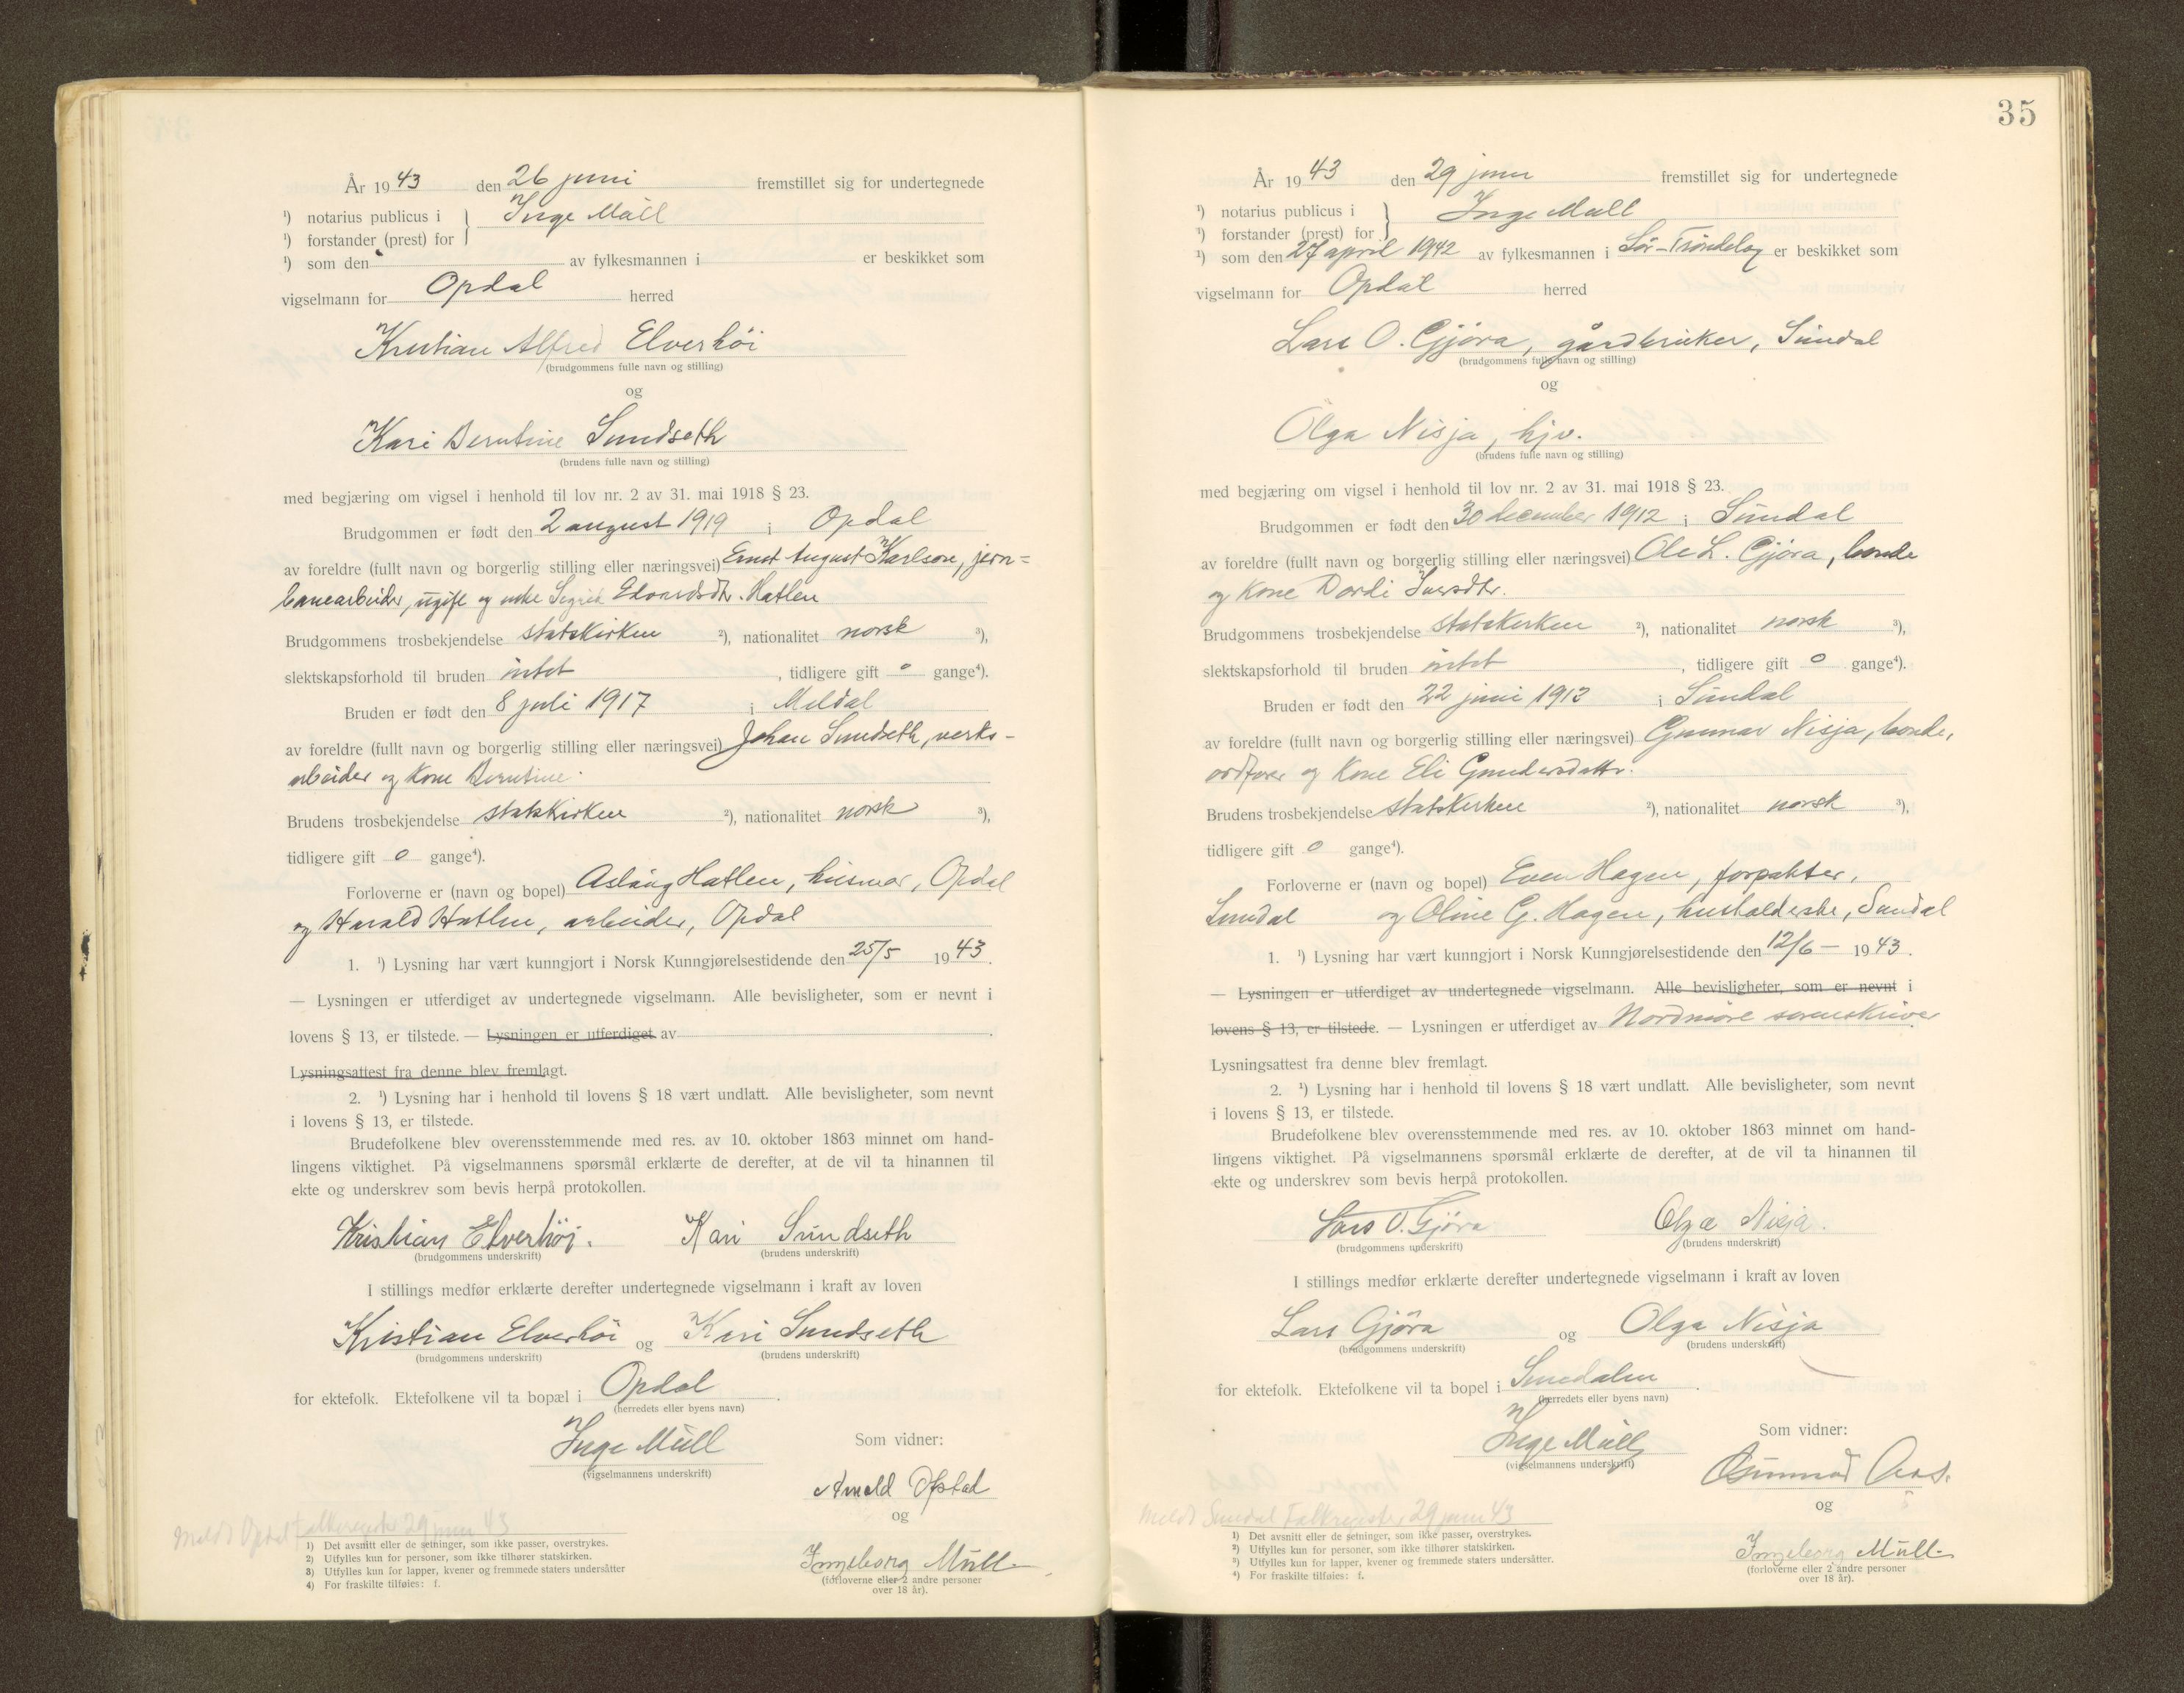 År 1943 den 26 juni fremstillet sig for undertegnede
¹) notarius publicus i } Inge Müll
¹) forstander (prest) for
¹) som den av fylkesmannen i er beskikket som
vigselmann for Opdal herred
Kristian Alfred Elverhöi
(brudgommens fulle navn og stilling)
og
Kari Berntine Sundseth
(brudens fulle navn og stilling)
med begjæring om vigsel i henhold til lov nr. 2 av 31. mai 1918 § 23.
Brudgommen er født den 2 august 1919 i Opdal
av foreldre (fullt navn og borgerlig stilling eller næringsvei) Ernst August Karlson, jern=
banearbeider, ugift og enke Sigrid Edvardsdtr. Hatlen
Brudgommens trosbekjendelse statskirken ²), nationalitet norsk ³),
slektskapsforhold til bruden intet , tidligere gift 0 gange⁴).
Bruden er født den 8 juli 1917 i Meldal
av foreldre (fullt navn og borgerlig stilling eller næringsvei) Johan Sundseth, verks-
arbeider og kone Berntine.
Brudens trosbekjendelse statskirken ²), nationalitet norsk ³),
tidligere gift 0 gange⁴).
Forloverne er (navn og bopel) Aslaug Hatlen, husmor, Opdal
og Harald Hatlen, arbeider, Opdal
1. ¹) Lysning har vært kunngjort i Norsk Kunngjørelsestidende den 25/5 1943.
— Lysningen er utferdiget av undertegnede vigselmann. Alle bevisligheter, som er nevnt i
lovens § 13, er tilstede. — Lysningen er utferdiget av .
Lysningsattest fra denne blev fremlagt.
2. ¹) Lysning har i henhold til lovens § 18 vært undlatt. Alle bevisligheter, som nevnt
i lovens § 13, er tilstede.
Brudefolkene blev overensstemmende med res. av 10. oktober 1863 minnet om hand-
lingens viktighet. På vigselmannens spørsmål erklærte de derefter, at de vil ta hinannen til
ekte og underskrev som bevis herpå protokollen.
Kristian Elverhöi. Kari Sundseth
(brudgommens underskrift) (brudens underskrift)
I stillings medfør erklærte derefter undertegnede vigselmann i kraft av loven
Kristian Elverhöi og Kari Sundseth
(brudgommens underskrift) (brudens underskrift)
for ektefolk. Ektefolkene vil ta bopæl i Opdal .
(herredets eller byens navn)
Inge Müll Som vidner:
(vigselmannens underskrift)
Arnold Ofstad
og
Ingeborg Müll.
(forloverne eller 2 andre personer
over 18 år).
Meldt Opdal Folkeregister 29 juni 43
1) Det avsnitt eller de setninger, som ikke passer, overstrykes.
2) Utfylles kun for personer, som ikke tilhører statskirken.
3) Utfylles kun for lapper, kvener og fremmede staters undersåtter
4) For fraskilte tilføies: f.
35
År 1943 den 29 juni fremstillet sig for undertegnede
¹) notarius publicus i } Inge Müll
¹) forstander (prest) for
¹) som den 27 april 1942 av fylkesmannen i Sör-Tröndelag er beskikket som
vigselmann for Opdal herred
Lars O. Gjöra, gårdbruker, Sundal
(brudgommens fulle navn og stilling)
og
Olga Nisja, hjv.
(brudens fulle navn og stilling)
med begjæring om vigsel i henhold til lov nr. 2 av 31. mai 1918 § 23.
Brudgommen er født den 30 december 1912 i Sundal
av foreldre (fullt navn og borgerlig stilling eller næringsvei) Ole L. Gjöra, bonde
og kone Dordi Iversdtr.
Brudgommens trosbekjendelse statskirken ²), nationalitet norsk ³),
slektskapsforhold til bruden intet , tidligere gift 0 gange⁴).
Bruden er født den 22 juni 1913 i Sundal
av foreldre (fullt navn og borgerlig stilling eller næringsvei) Gunnar Nisja, bonde,
ordfører og kone Eli Gundersdattr.
Brudens trosbekjendelse statskirken ²), nationalitet norsk ³),
tidligere gift 0 gange⁴).
Forloverne er (navn og bopel) Even Hagen, forpakter,
Sundal og Oline G. Hagen, husholderske, Sundal
1. ¹) Lysning har vært kunngjort i Norsk Kunngjørelsestidende den 12/6 — 1943.
— Lysningen er utferdiget av undertegnede vigselmann. Alle bevisligheter, som er nevnt i
lovens § 13, er tilstede. — Lysningen er utferdiget av Nordmöre sorenskriver
Lysningsattest fra denne blev fremlagt.
2. ¹) Lysning har i henhold til lovens § 18 vært undlatt. Alle bevisligheter, som nevnt
i lovens § 13, er tilstede.
Brudefolkene blev overensstemmende med res. av 10. oktober 1863 minnet om hand-
lingens viktighet. På vigselmannens spørsmål erklærte de derefter, at de vil ta hinannen til
ekte og underskrev som bevis herpå protokollen.
Lars O. Gjöra Olga Nisja.
(brudgommens underskrift) (brudens underskrift)
I stillings medfør erklærte derefter undertegnede vigselmann i kraft av loven
Lars Gjöra og Olga Nisja
(brudgommens underskrift) (brudens underskrift)
for ektefolk. Ektefolkene vil ta bopel i Sundalen .
(herredets eller byens navn)
Inge Müll Som vidner:
(vigselmannens underskrift)
Gunnvald Aas.
og
Ingeborg Müll.
(forloverne eller 2 andre personer
over 18 år).
Meldt Sundal Folkregister 29 juni 43
¹) Det avsnitt eller de setninger, som ikke passer, overstrykes.
²) Utfylles kun for personer, som ikke tilhører statskirken.
³) Utfylles kun for lapper, kvener og fremmede staters undersåtter.
⁴) For fraskilte tilføies: f.